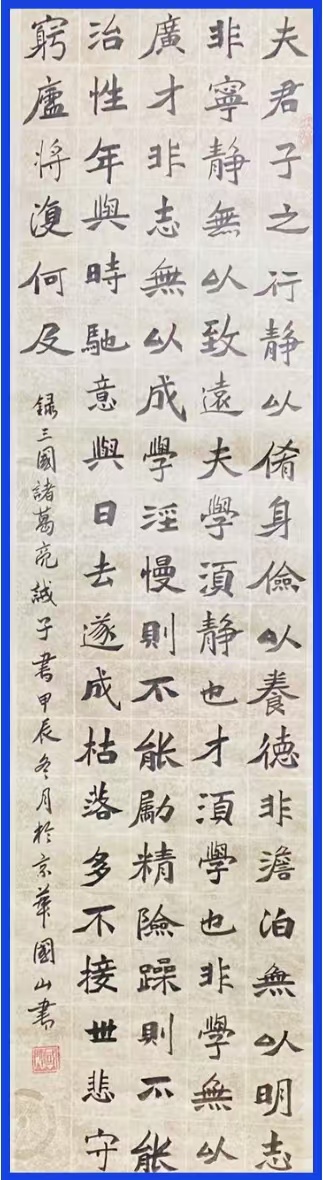 夫君子之行静以脩身儉以養德非澹泊無以明志
非寧静無以致遠夫學湏静也才湏學也非學無以
廣才非志無以成學淫慢則不能勵精險躁則不能
治性年與時馳意與日去遂成枯落多不接世悲守
窮廬將復何及
録三國諸葛亮誡子書甲辰冬月於京華國山書